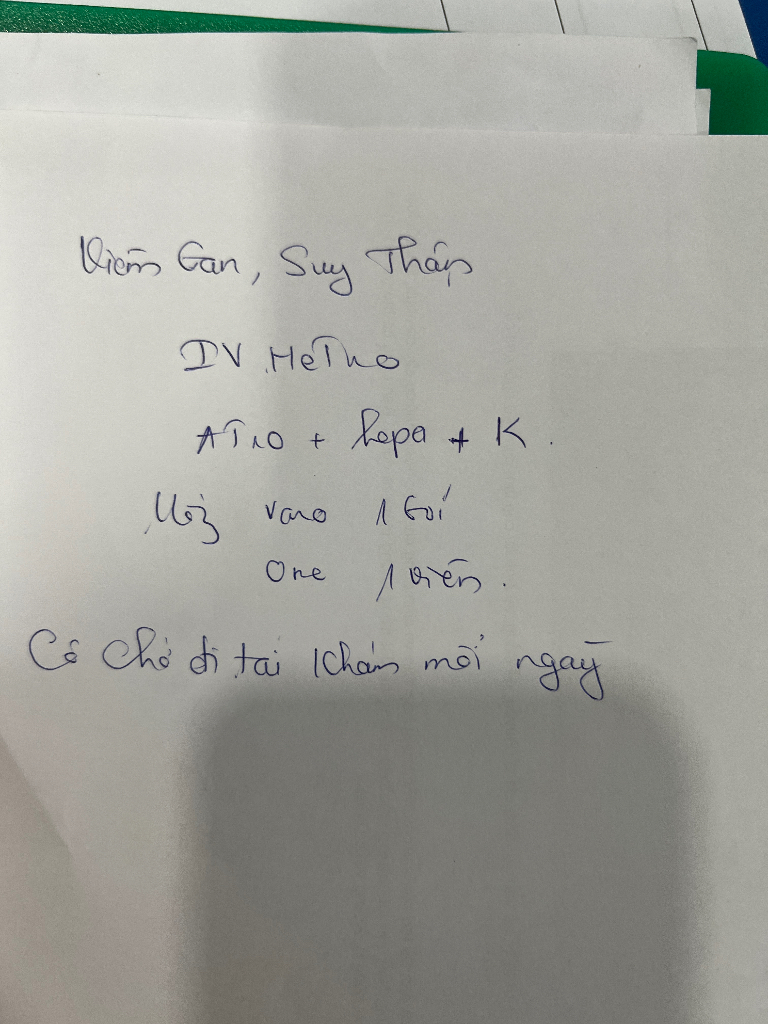 Viêm Gan, Suy Thận
IV Metro
ATRO + hepa + K.
Uống varo 1 Gói
One 1 viên.
Cô chở đi tái khám mỗi ngày